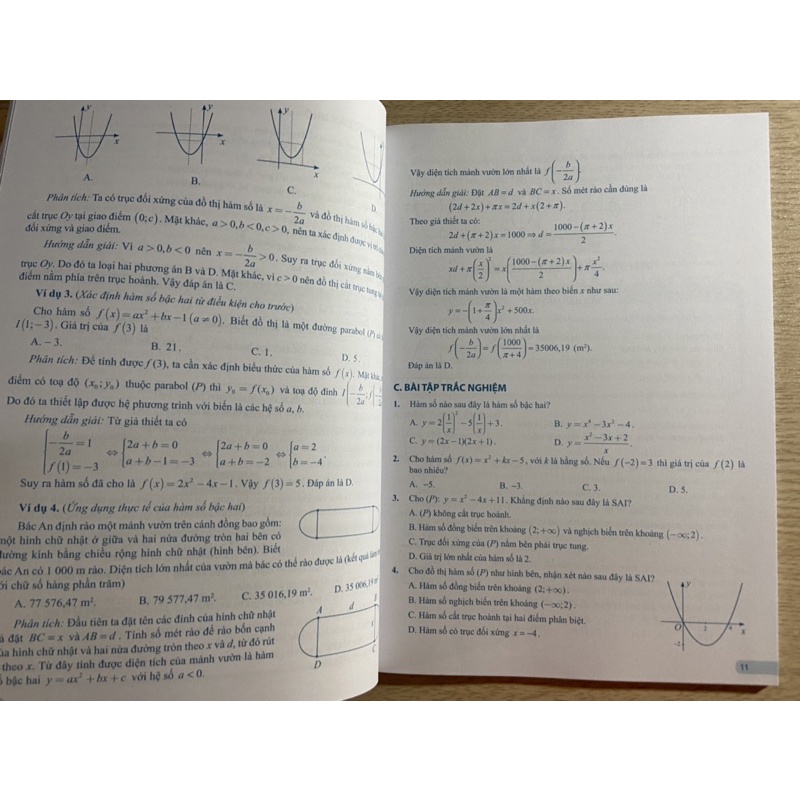 y
x
A.
y
x
B.
y
x
C.
D.
Phân tích: Ta có trục đối xứng của đồ thị hàm số là x = -b/2a và đồ thị hàm số bậc hai
cắt trục Oy tại giao điểm (0;c). Mặt khác, a > 0, b < 0, c > 0, nên ta xác định được vị trí
đối xứng và giao điểm.
Hướng dẫn giải: Vì a > 0, b < 0 nên x = -b/2a > 0. Suy ra trục đối xứng nằm bên
trục Oy. Do đó ta loại hai phương án B và D. Mặt khác, vì c > 0 nên đồ thị cắt trục tung tại
điểm nằm phía trên trục hoành. Vậy đáp án là C.
Ví dụ 3. (Xác định hàm số bậc hai từ điều kiện cho trước)
Cho hàm số f(x) = ax² + bx - 1 (a ≠ 0). Biết đồ thị là một đường parabol (P)
I(1;-3). Giá trị của f(3) là
A. -3. B. 21. C. 1. D. 5.
Phân tích: Để tính được f(3), ta cần xác định biểu thức của hàm số f(x). Mặt khác,
điểm có toạ độ (x₀; y₀) thuộc parabol (P) thì y₀ = f(x₀) và toạ độ đỉnh I(-b/2a; f(
Do đó ta thiết lập được hệ phương trình với biến là các hệ số a, b.
Hướng dẫn giải: Từ giả thiết ta có
{ -b/2a = 1; f(1) = -3 ⇔ { 2a + b = 0; a + b - 1 = -3 ⇔ { 2a + b = 0; a + b = -2 ⇔ { a = 2; b = -4 .
Suy ra hàm số đã cho là f(x) = 2x² - 4x - 1. Vậy f(3) = 5. Đáp án là D.
Ví dụ 4. (Ứng dụng thực tế của hàm số bậc hai)
Bác An định rào một mảnh vườn trên cánh đồng bao gồm:
một hình chữ nhật ở giữa và hai nửa đường tròn hai bên có
đường kính bằng chiều rộng hình chữ nhật (hình bên). Biết
bác An có 1 000 m rào. Diện tích lớn nhất của vườn mà bác có thể rào được là (kết quả làm
với chữ số hàng phần trăm)
A. 77 576,47 m². B. 79 577,47 m². C. 35 016,19 m². D. 35 006,19 m²
Phân tích: Đầu tiên ta đặt tên các đỉnh của hình chữ nhật
đặt BC = x và AB = d. Tính số mét rào để rào bốn cạnh
của hình chữ nhật và hai nửa đường tròn theo x và d, từ đó rút
theo x. Từ đây tính được diện tích của mảnh vườn là hàm
bậc hai y = ax² + bx + c với hệ số a < 0.
A
d
D
C
Vậy diện tích mảnh vườn lớn nhất là f(-b/2a).
Hướng dẫn giải: Đặt AB = d và BC = x. Số mét rào cần dùng là
(2d + 2x) + πx = 2d + x(2 + π).
Theo giả thiết ta có:
2d + (π + 2)x = 1000 ⇒ d = (1000 - (π + 2)x)/2.
Diện tích mảnh vườn là
xd + π(x/2)² = x((1000 - (π + 2)x)/2) + π x²/4.
Vậy diện tích mảnh vườn là một hàm theo biến x như sau:
y = -(1 + π/4)x² + 500x.
Vậy diện tích mảnh vườn lớn nhất là
f(-b/2a) = f(1000/(π + 4)) = 35006,19 (m²).
Đáp án là D.
C. BÀI TẬP TRẮC NGHIỆM
1. Hàm số nào sau đây là hàm số bậc hai?
A. y = 2(1/x)² - 5(1/x) + 3. B. y = x⁴ - 3x² - 4.
C. y = (2x - 1)(2x + 1). D. y = (x² - 3x + 2)/x.
2. Cho hàm số f(x) = x² + kx - 5, với k là hằng số. Nếu f(-2) = 3 thì giá trị của f(2) là
bao nhiêu?
A. -5. B. -3. C. 3. D. 5.
3. Cho (P): y = x² - 4x + 11. Khẳng định nào sau đây là SAI?
A. (P) không cắt trục hoành.
B. Hàm số đồng biến trên khoảng (2;+∞) và nghịch biến trên khoảng (-∞;2).
C. Trục đối xứng của (P) nằm bên phải trục tung.
D. Giá trị lớn nhất của hàm số là 2.
4. Cho đồ thị hàm số (P) như hình bên, nhận xét nào sau đây là SAI?
A. Hàm số đồng biến trên khoảng (2;+∞).
B. Hàm số nghịch biến trên khoảng (-∞;2).
C. Hàm số cắt trục hoành tại hai điểm phân biệt.
D. Hàm số có trục đối xứng x = -4.
y
O 2 4 x
-2
11